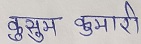 कुसुम कुमारी